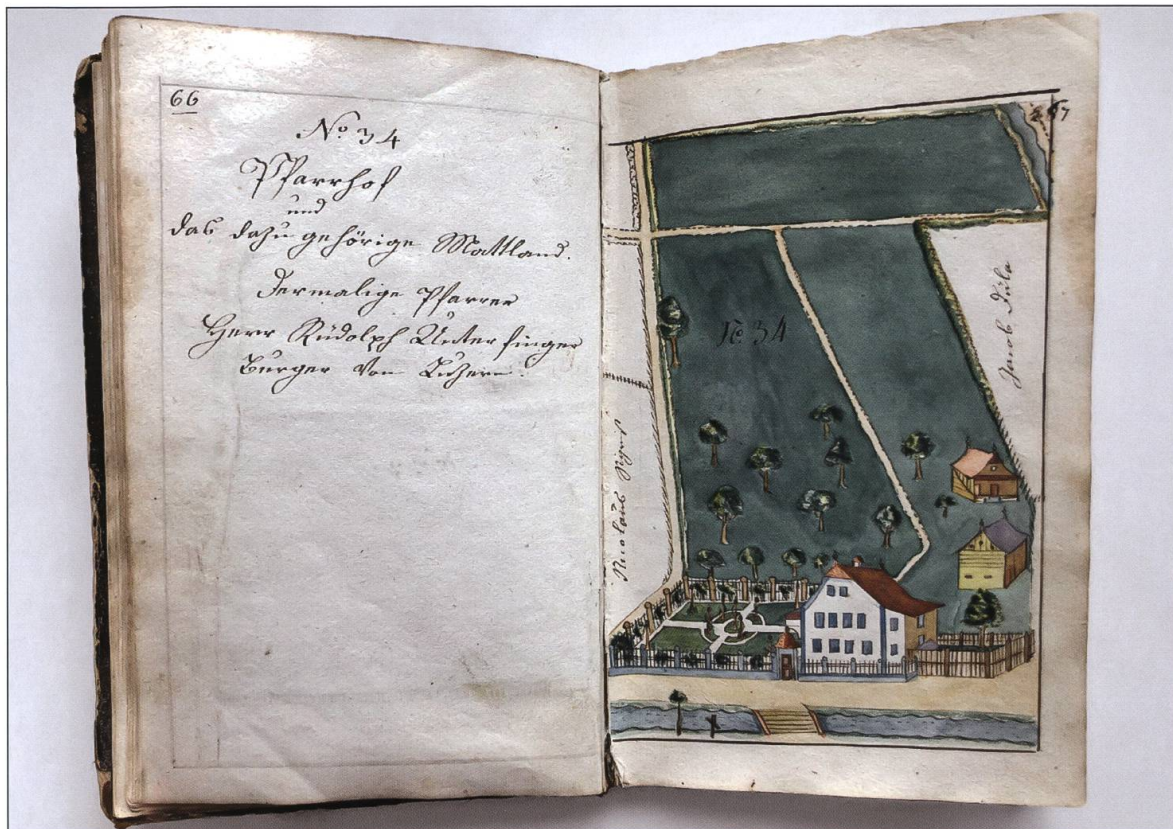 66
No 34
Pfarrhof
und
das dazu gehörige Mattland.
Dermalige Pfarrer
Herr Rudolph Unterfinger
Burger von Luzern.
67
No 34
Jacob
Nicolaus